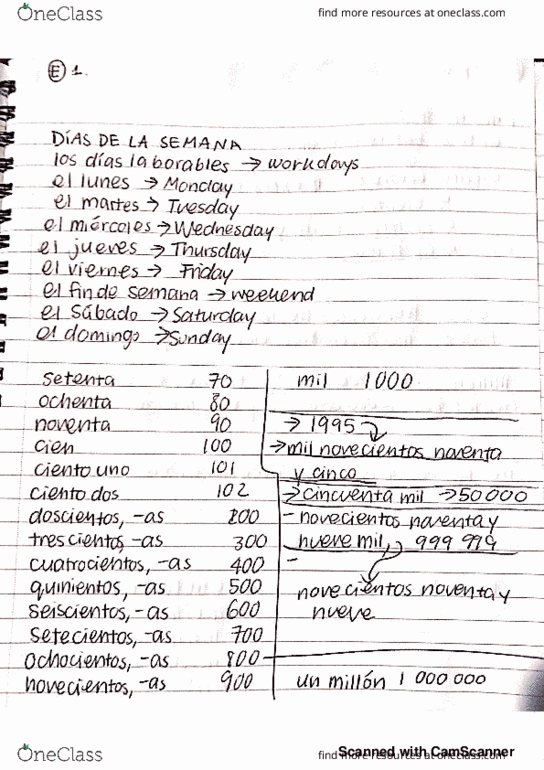 OneClass
find more resources at oneclass.com
E 1.
DÍAS DE LA SEMANA
los días laborables → workdays
el lunes → Monday
el martes → Tuesday
el miércoles → Wednesday
el jueves → Thursday
el viernes → Friday
el fin de semana → weekend
el sábado → Saturday
el domingo → Sunday
setenta 70
ochenta 80
noventa 90
cien 100
ciento uno 101
ciento dos 102
doscientos, -as 200
trescientos, -as 300
cuatrocientos, -as 400
quinientos, -as 500
seiscientos, -as 600
setecientos, -as 700
ochocientos, -as 800
novecientos, -as 900
mil 1000
→ 1995
→ mil novecientos noventa
y cinco
→ cincuenta mil → 50 000
- novecientos noventa y
nueve mil, 999 999
-
novecientos noventa y
nueve
un millón 1 000 000
OneClass
find more resources at oneclass.com
Scanned with CamScanner